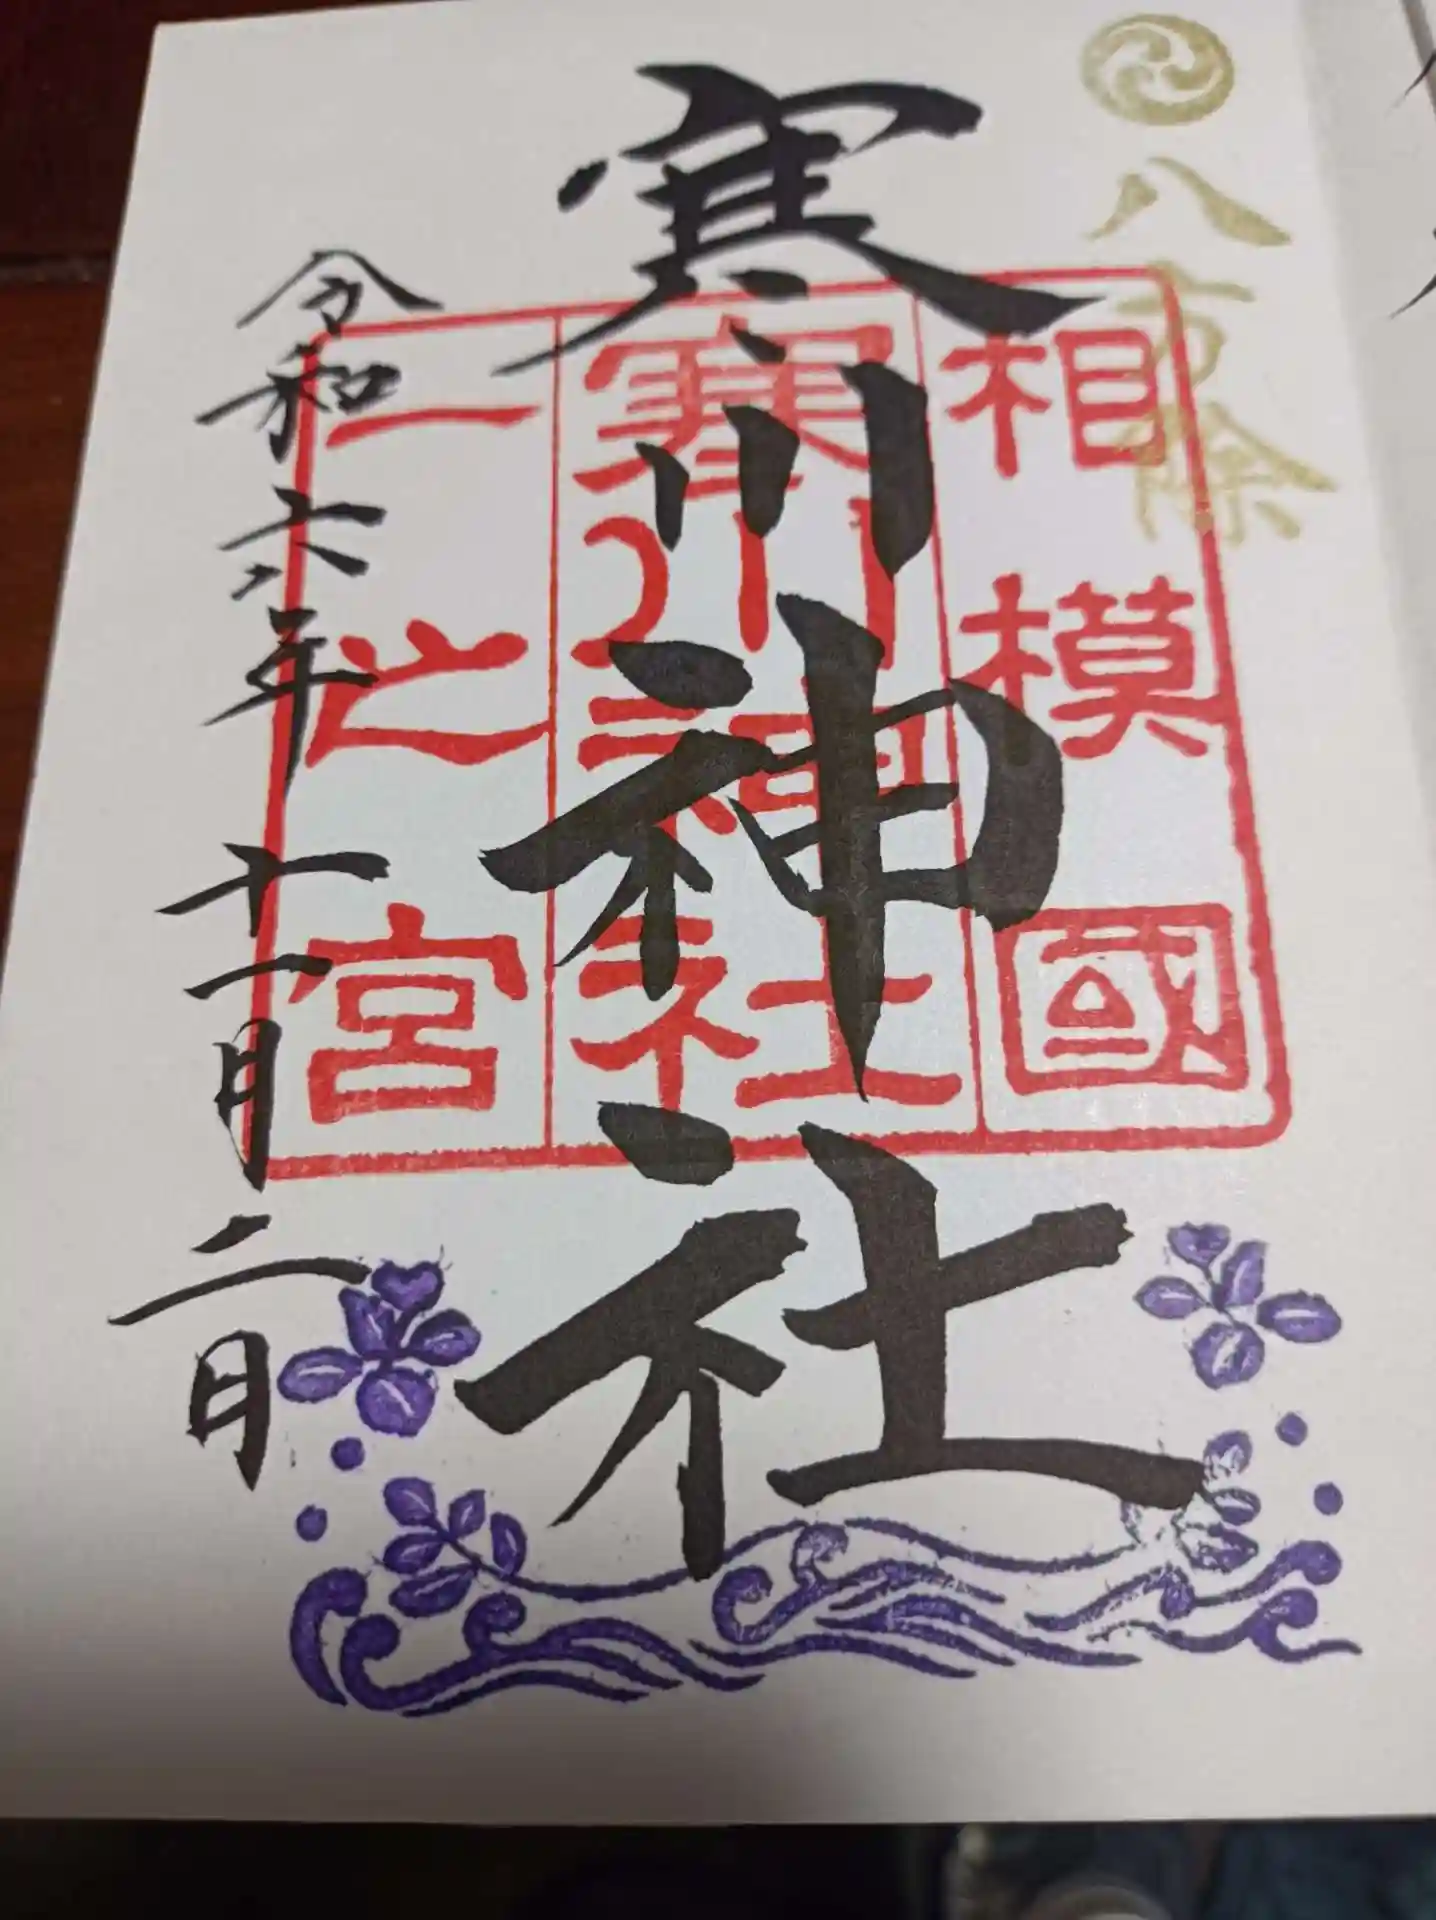 八方除
相模國
寒川神社
一之宮
寒川神社
令和六年十一月二日